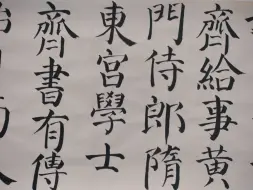 齊給事黃
門侍郎隋
東宮學士
齊書有傳